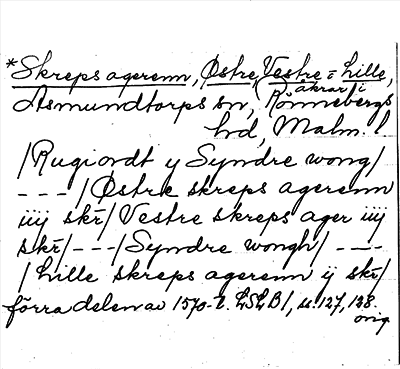 *Skreps agerenn, Østre, Vestre = Lille,
åkrar i
Asmundtorps sn, Rönnebergs
hd, Malm. l.
/Rugiordt y Syndre wong/
--- /Østre skreps agerenn
iiij skr̄/ Vestre skreps ager iiij
skr̄/ --- /Syndre wongh/ ---
/Lille skreps agerenn ij skr̄/
förra delen av 1570-t. LSLB1, s. 127, 128.
orig.